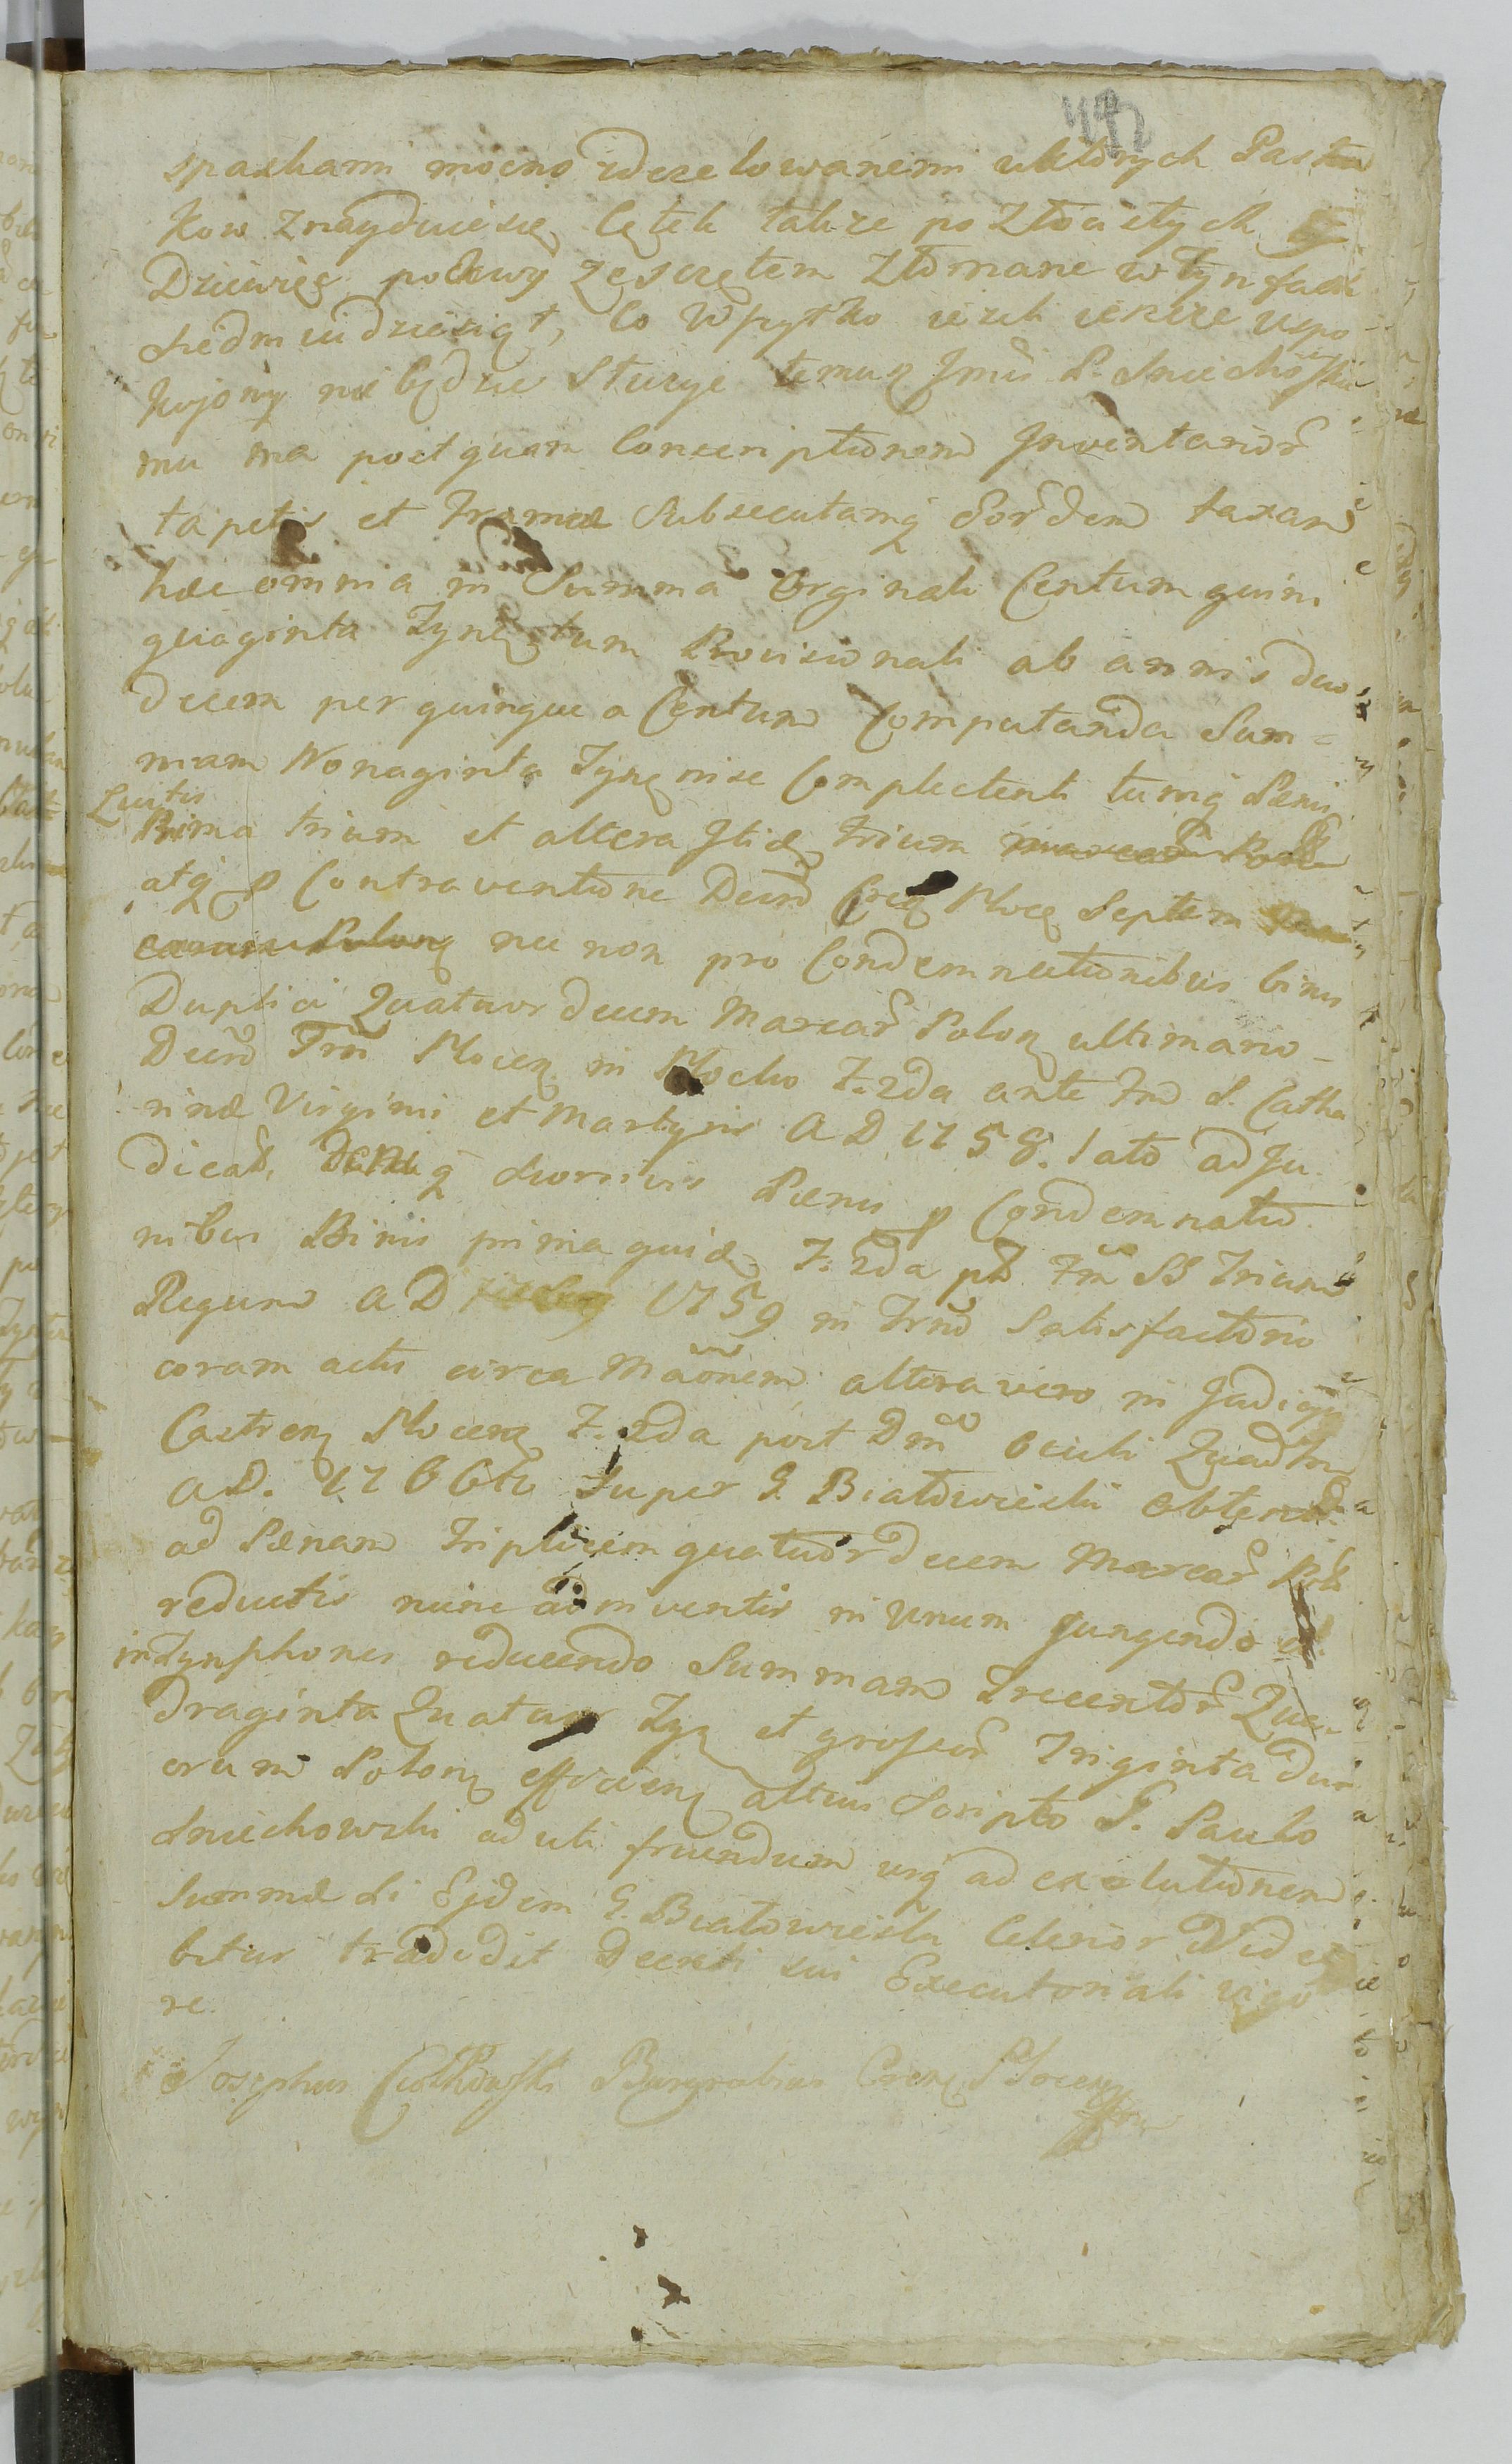 492
spaskami mocno zdezelowanemi uktorych Pasku
kow znayduiesię Cętek także pozłocistych
Dziewięc podkwy ze szczętem złomane w Tynfach
siedmiudziesiąt, Co Wszytko ieżeli ieszcze uspo
kojony nie będzie Służyc temuż Jmci P. Sniechowskie
mu ma postquam Conscriptionem Inventarior
tapetis et frameæ subsecutamq Eordem taxam
hæc omnia in Summa Orginali Centum quin
quaginta Tynę tum Provisionali ab annis duo
decem per quinque a Centum Computanda Sum=
mam Nonaginta Tynę nise Complectenti tumq Pænis
Luitis
Prima trium et altera Jtidę trium marcar Pol
atq p Contraventione Decrti Cręę Plocę Septem
nec non pro Condemnationibus binis
Duplici Quatuordecem Marcar Polonę ultimario
Decrto Trnń Plocen in Plocko F. 2da ante Fm S. Catha
rinæ Virginis et Martyris A D 1758. lato adju
dicat, Deniq diversis Pænis p Condemnatio
nibus Binis prima quidę F. 2da pt Fm SS Trium
Regum A D 1759 in Trno Satisfactorio
coram actis circa Maonem, altera vero in Judicijs
Castren Plocen F. 2da post Dmcā Oculi Quadm
A D. 1766to super G. Białowieski obtent
ad Pænam Triplicem quatuordecem Marcar Pol
reductis nunc adinventis in Unum Jungendo et
in Tynphones reducendo Summam Trecentor Qua
draginta Quatuor Tyę et grossor Triginta duo
orum Polonę efficienę altius Scripto G. Paulo
Sniechowski ad uti fruendum usq ad exolutionem
Summæ Si Ejdem G. Białowieski Celerior Vide
bitur tradidit Decreti sui Executoriali vigo
re.
Josephus Ciołkowski Burgrabius Cręnę Plocenę